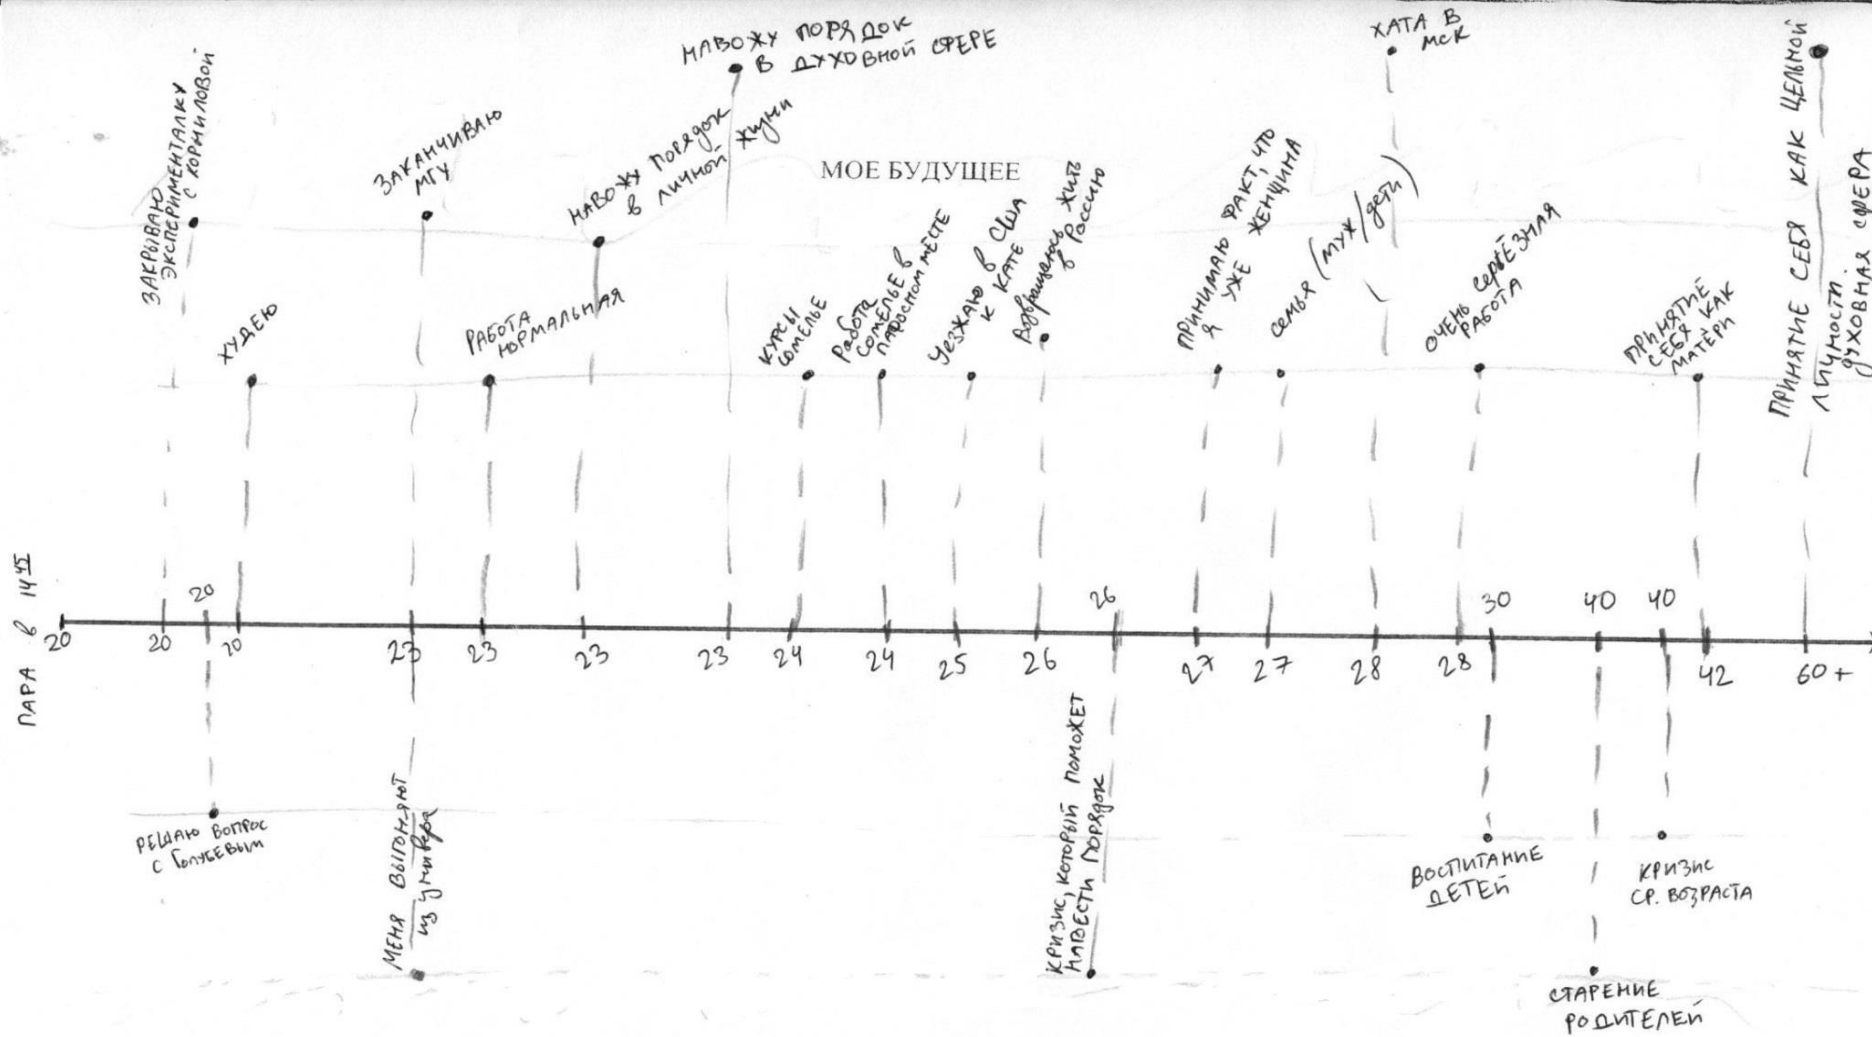 МОЕ БУДУЩЕЕ
ЗАКРЫВАЮ
ЭКСПЕРИМЕНТАЛКУ
С КОРНИЛОВОЙ
ХУДЕЮ
ЗАКАНЧИВАЮ
МГУ
РАБОТА
НОРМАЛЬНАЯ
НАВОЖУ ПОРЯДОК
в личной жизни
НАВОЖУ ПОРЯДОК
В ДУХОВНОЙ СФЕРЕ
КУРСЫ
СОМЕЛЬЕ
Работа
СОМЕЛЬЕ в
ПАФОСНОМ МЕСТЕ
УЕЗЖАЮ в США
К КАТЕ
Возвращаюсь жить
в Россию
ПРИНИМАЮ ФАКТ, ЧТО
Я УЖЕ ЖЕНЩИНА
СЕМЬЯ (муж/дети)
ХАТА В
МСК
ОЧЕНЬ СЕРЬЁЗНАЯ
РАБОТА
ПРИНЯТИЕ
СЕБЯ КАК
МАТЕРИ
ПРИНЯТИЕ СЕБЯ КАК ЦЕЛЬНОЙ
ЛИЧНОСТИ
ДУХОВНАЯ СФЕРА
ПАРА В 14 45
20 26 30 40 40
20 20 20 23 23 23 23 24 24 25 26 27 27 28 28 42 60+
РЕШАЮ ВОПРОС
С ГОЛУБЕВЫМ
МЕНЯ ВЫГОНЯЮТ
из универа
КРИЗИС, КОТОРЫЙ ПОМОЖЕТ
НАВЕСТИ ПОРЯДОК
ВОСПИТАНИЕ
ДЕТЕЙ
СТАРЕНИЕ
РОДИТЕЛЕЙ
КРИЗИС
СР. ВОЗРАСТА